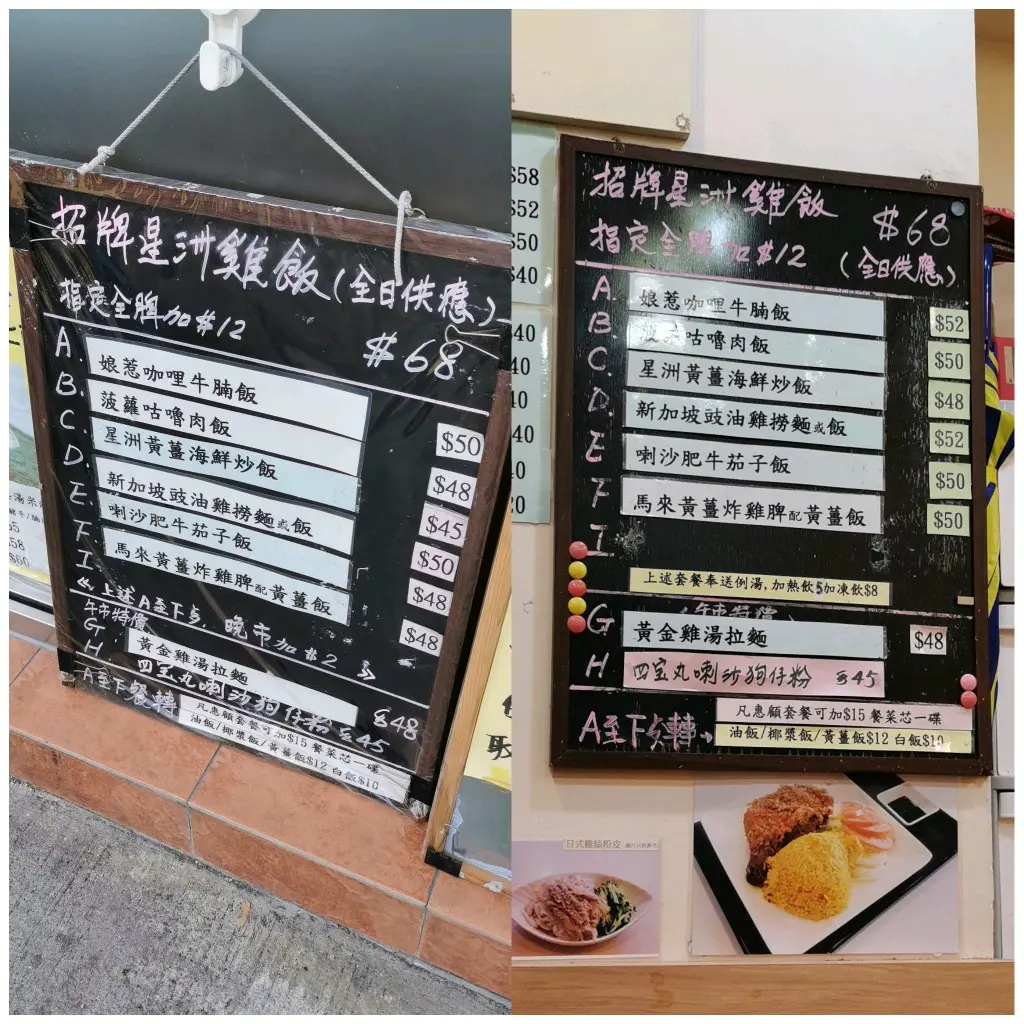 招牌星洲雞飯(全日供應)
指定全脾加$12
$68
A.
娘惹咖哩牛腩飯
$50
B.
菠蘿咕嚕肉飯
$48
C.
星洲黃薑海鮮炒飯
$45
D.
新加坡豉油雞撈麵或飯
$50
E.
喇沙肥牛茄子飯
$48
F.
馬來黃薑炸雞脾配黃薑飯
$48
I.
上述A至下5, 晚市加$2
午市特價
G
黃金雞湯拉麵
$48
H
四宝丸喇沙狗仔粉 $45
A至下餐轉
凡惠顧套餐可加$15 餐菜芯一碟
油飯/椰漿飯/黃薑飯$12 白飯$10
$58
$52
$50
$40
招牌星洲雞飯
$68
指定全脾加$12
(全日供應)
A.
娘惹咖哩牛腩飯
$52
B.
咕嚕肉飯
$50
C.
星洲黃薑海鮮炒飯
$48
D.
新加坡豉油雞撈麵或飯
$52
E
喇沙肥牛茄子飯
$50
F
馬來黃薑炸雞脾配黃薑飯
$50
I
上述套餐奉送例湯,加熱飲5加凍飲$8
午市特價
G
黃金雞湯拉麵
$48
H
四宝丸喇沙狗仔粉 $45
A至下5轉
凡惠顧套餐可加$15 餐菜芯一碟
油飯/椰漿飯/黃薑飯$12 白飯$10
日式雞絲粉皮